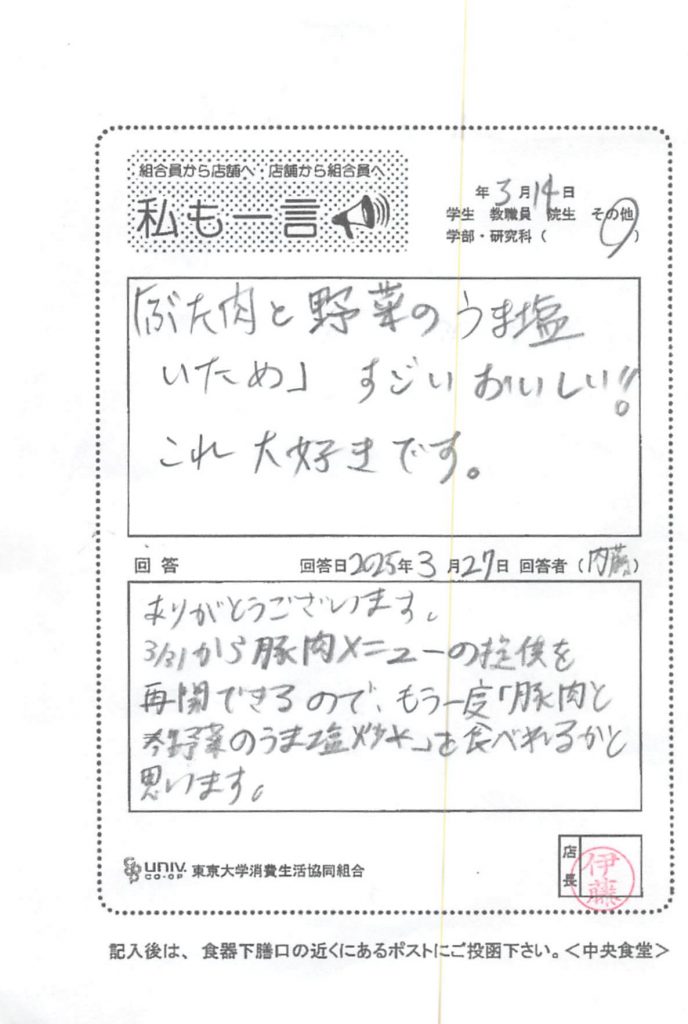 組合員から店舗へ・店舗から組合員へ
私も一言
年 3月14日
学生 教職員 院生 その他
学部・研究科( )
「ぶた肉と野菜のうま塩
いため」 すごいおいしい!!
これ大好きです。
回答 回答日2025年3月27日 回答者(内藤)
ありがとうございます。
3/31から豚肉メニューの提供を
再開できるので、もう一度「豚肉と
春野菜のうま塩炒め」を食べれるかと
思います。
UNIV. CO-OP 東京大学消費生活協同組合
店長 伊藤
記入後は、食器下膳口の近くにあるポストにご投函下さい。<中央食堂>